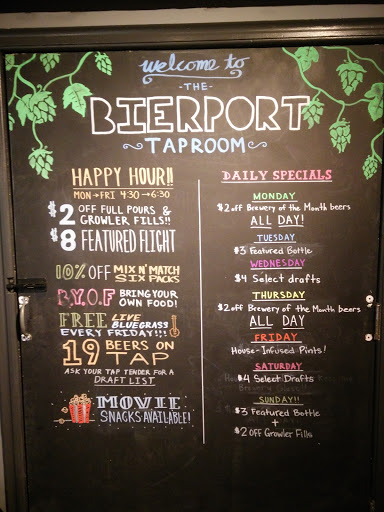 welcome to
- THE -
BIERPORT
TAPROOM
HAPPY HOUR!!
MON → FRI 4:30 → 6:30
$2 OFF FULL POURS &
GROWLER FILLS!!
$8 FEATURED FLIGHT
10% OFF MIX N' MATCH
SIX PACKS
B.Y.O.F BRING YOUR
OWN FOOD!
FREE LIVE
BLUEGRASS
EVERY FRIDAY!!!
19 BEERS ON
TAP
ASK YOUR TAP TENDER FOR A
DRAFT LIST
MOVIE
SNACKS AVAILABLE!
DAILY SPECIALS
MONDAY
$2 off Brewery of the Month beers
ALL DAY!
TUESDAY
$3 Featured Bottle
WEDNESDAY
$4 Select drafts
THURSDAY
$2 off Brewery of the Month beers
ALL DAY
FRIDAY
House-Infused Pints!
SATURDAY
$4 Select Drafts
SUNDAY!!
$3 Featured Bottle
+
$2 OFF Growler Fills